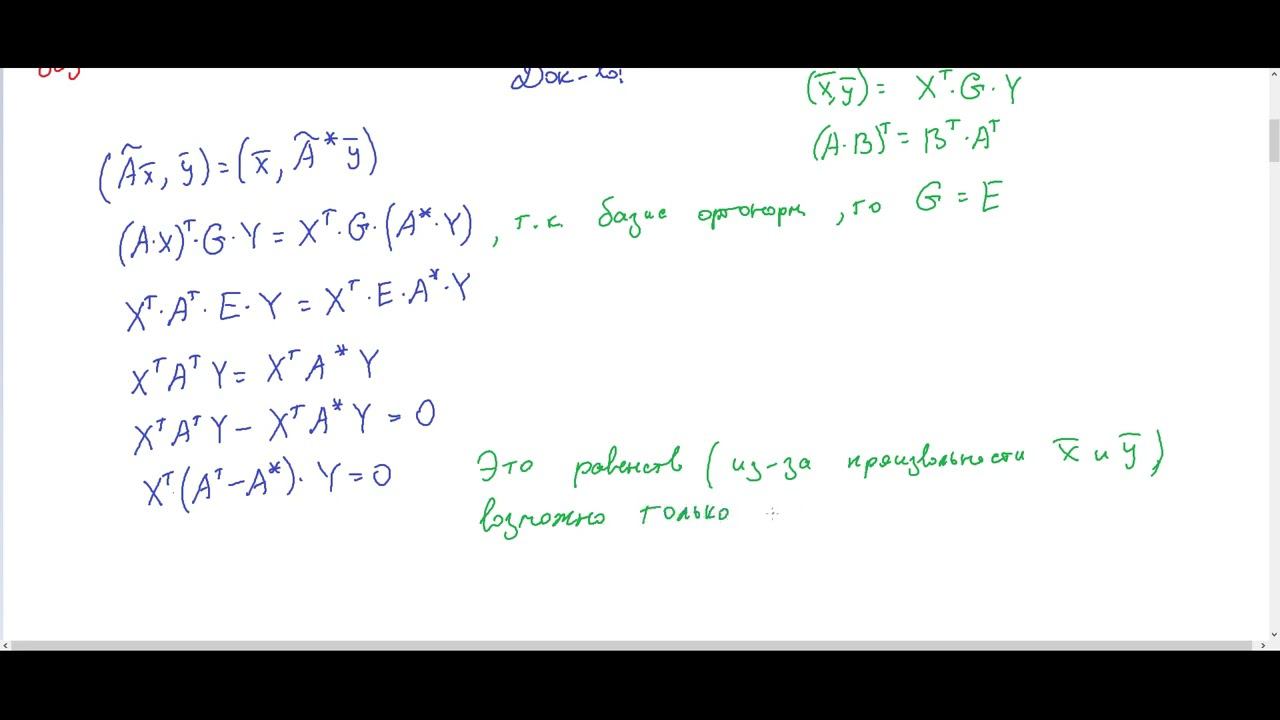 Док-во!
(x̅, y̅) = Xᵀ·G·Y
(A·B)ᵀ = Bᵀ·Aᵀ
(Ãx̅, y̅) = (x̅, Ã*y̅)
(A·X)ᵀ·G·Y = Xᵀ·G·(A*·Y) , т.к. базис ортонорм , то G = E
Xᵀ·Aᵀ·E·Y = Xᵀ·E·A*·Y
XᵀAᵀY = XᵀA*Y
XᵀAᵀY - XᵀA*Y = 0
Xᵀ·(Aᵀ-A*)·Y = 0
Это равенств (из-за произвольности x̅ и y̅)
возможно только